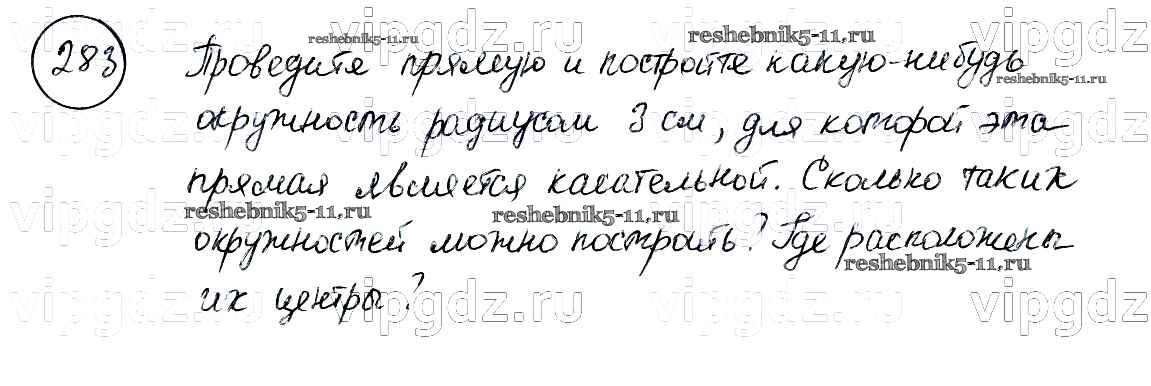 283 Проведите прямую и постройте какую-нибудь
окружность радиусом 3 см, для которой эта
прямая является касательной. Сколько таких
окружностей можно построить? Где расположены
их центры?
vipgdz.ru vipgdz.ru vipgdz.ru vipgdz.ru
reshebnik5-11.ru reshebnik5-11.ru
reshebnik5-11.ru
vipgdz.ru vipgdz.ru vipgdz.ru vipgdz.ru
reshebnik5-11.ru reshebnik5-11.ru
reshebnik5-11.ru
vipgdz.ru vipgdz.ru vipgdz.ru vipgdz.ru